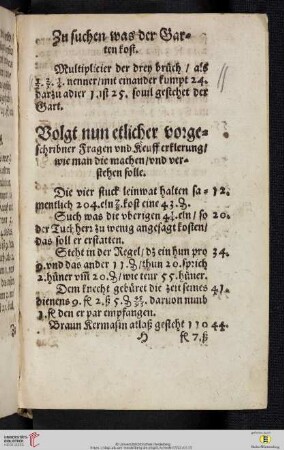 Zu suchen was der Gar-
ten kost.
Multiplicier der drey brüch / als
nenner / mit einander kumpt 24.
darzu adier 1. ist 25. souil gestehet der
Gart.
Volgt nun etlicher vorge-
schribner Fragen vnd Keuff erklerung /
wie man die machen / vnd ver-
stehen solle.
Die vier stuck leinwat halten sa- 12.
mentlich 204. eln kost eine 43. ₰.
Such was die vberigen eln / so 20.
der Tuch herr zu wenig angesagt kosten /
das soll er erstatten.
Steht in der Regel / dz ein hun pro 34
9. vnd das ander 11. ₰ / thun 20. sprich
2. hüner vm̄ 20. ₰ / wie teur 55. hüner.
Dem knecht gebüret die zeit seines 41.
dienens 9. fl 2. ß 5. ₰ daruon nimb
1. fl den er par empfangen.
Braun Kermasin atlaß gesteht 110 44.
fl 7. ß